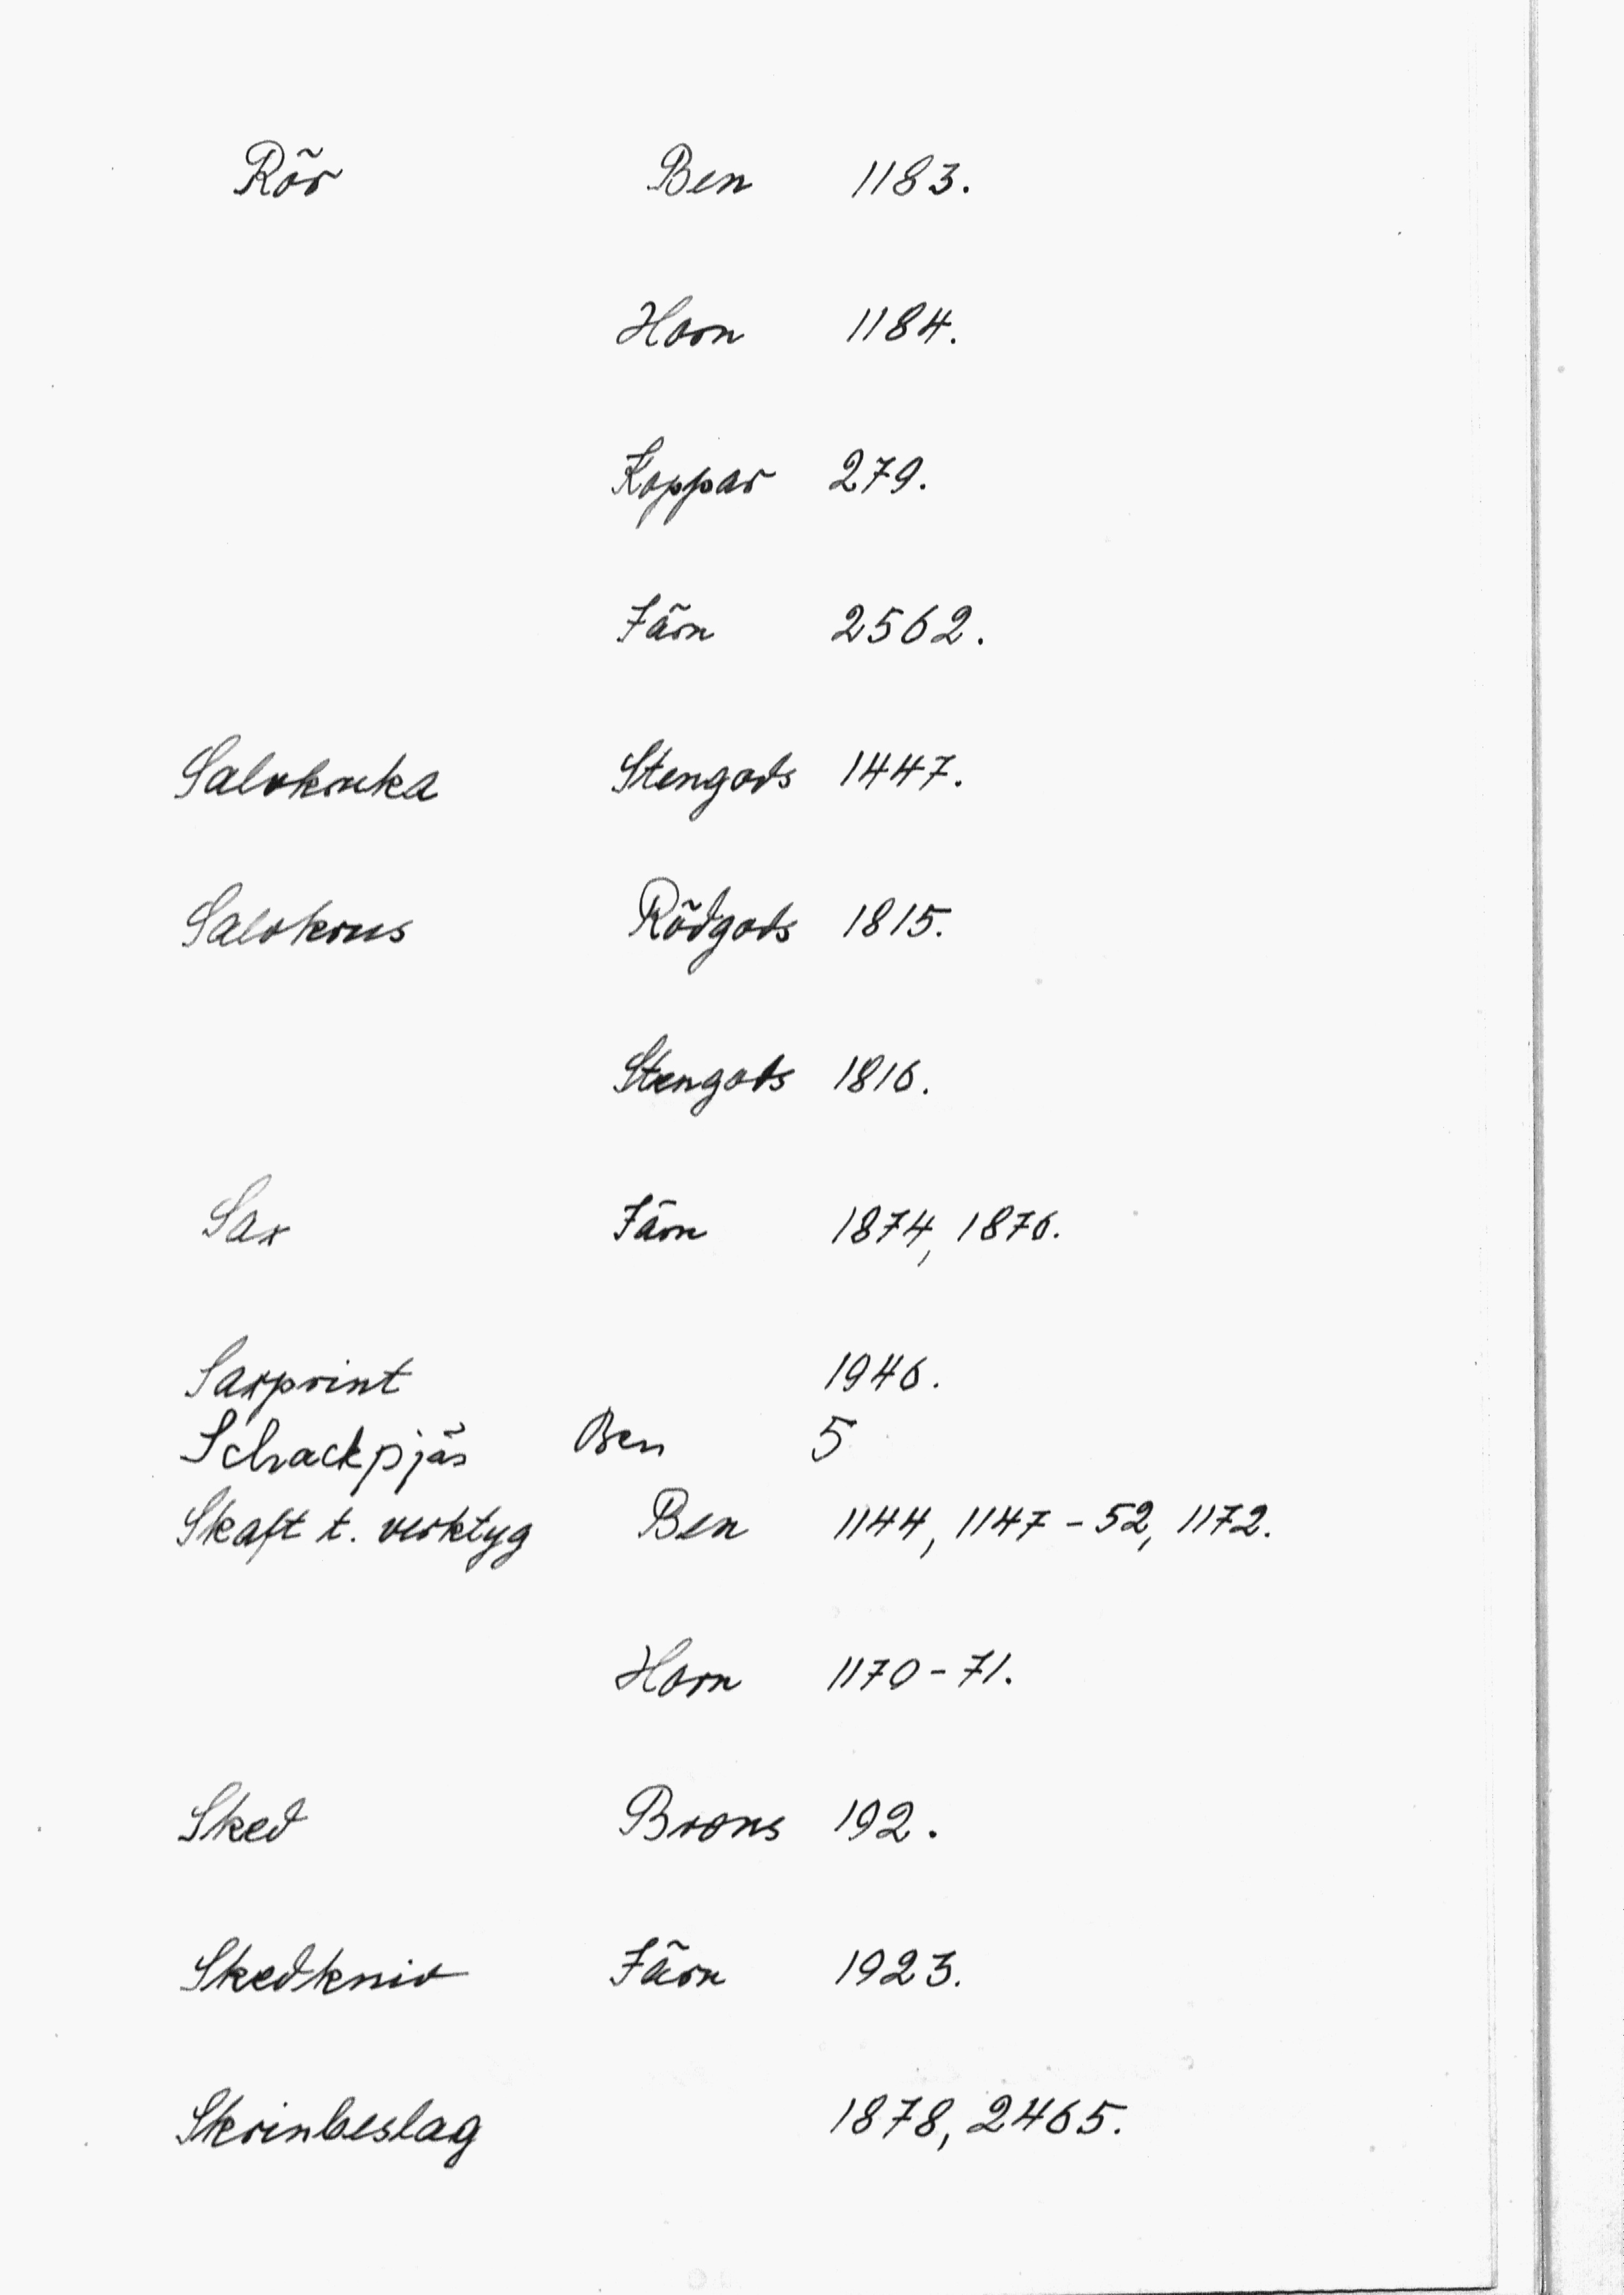 Rör Ben 1183.
Horn 1184.
Koppar 279.
Järn 2562.
Salvkruka Stengods 1447.
Salvkrus Rödgods 1815.
Stengods 1816.
Sax Järn 1874, 1876.
Saxprint 1946.
Schackpjäs Ben 5
Skaft t. verktyg Ben 1144, 1147-52, 1172.
Horn 1170-71.
Sked Brons 192.
Skedkniv Järn 1923.
Skrinbeslag 1878, 2465.